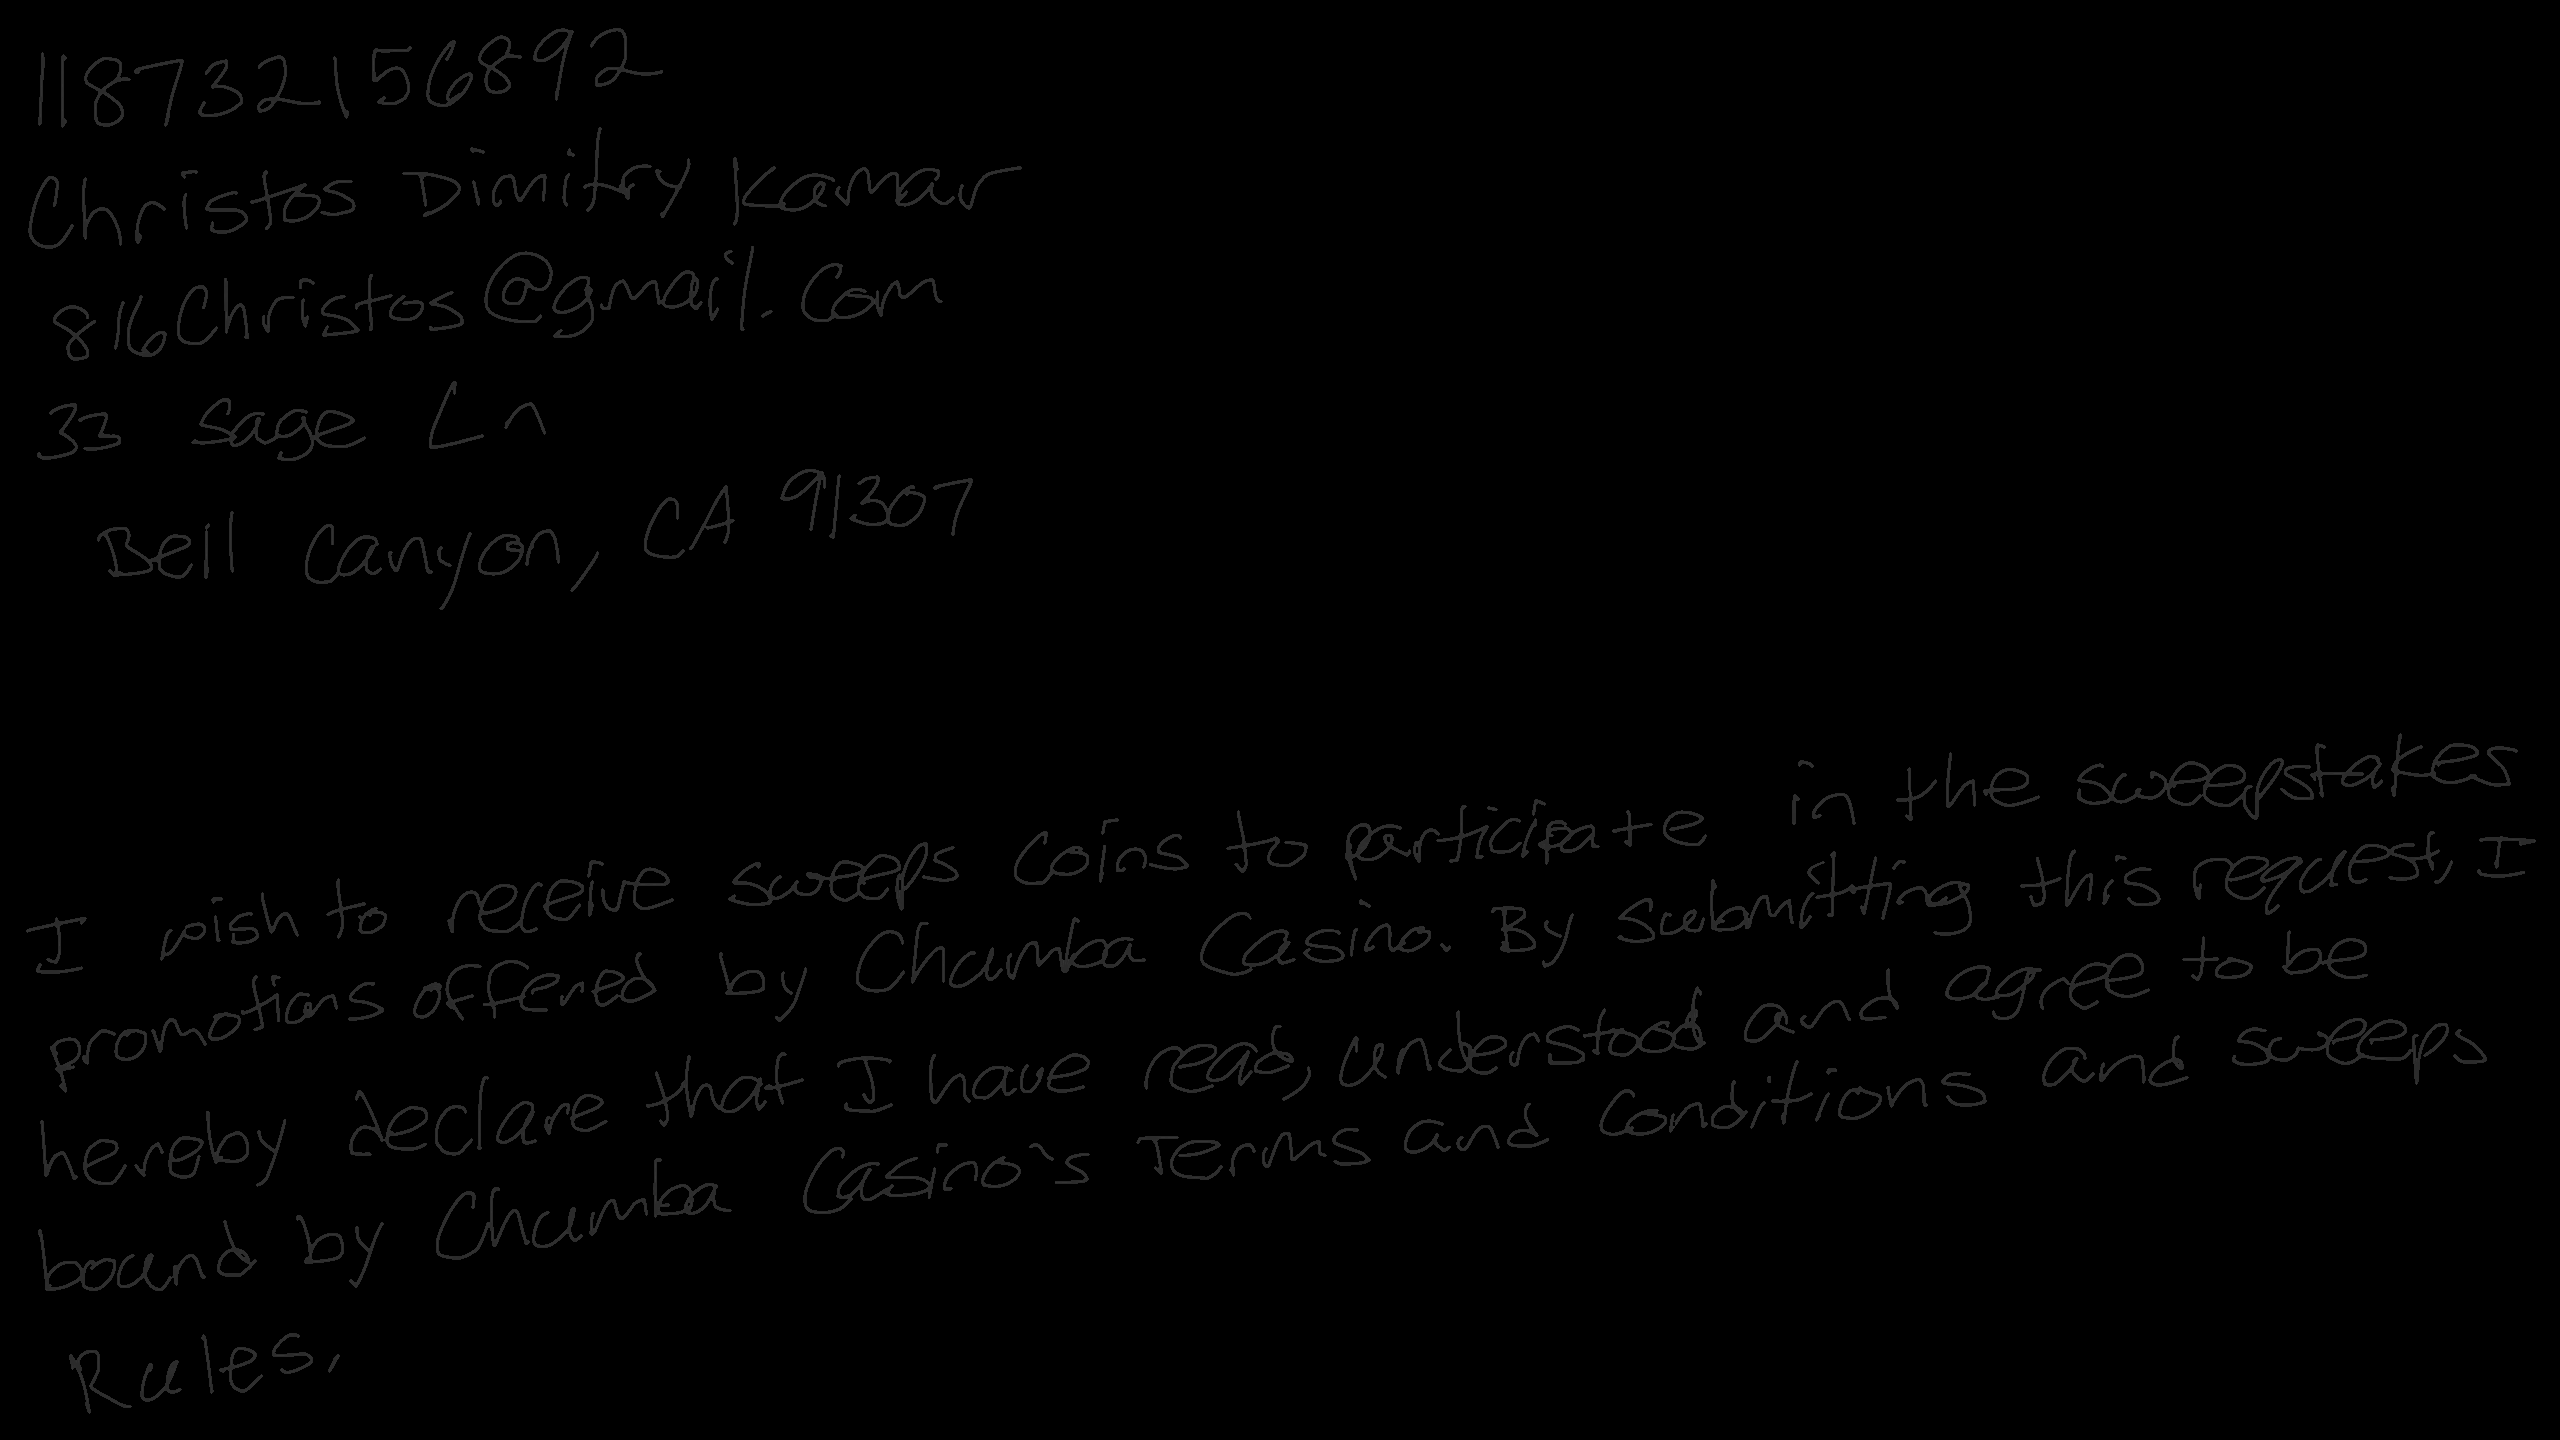 118732156892
Christos Dimitry Kamar
816Christos@gmail.com
33 Sage Ln
Bell Canyon, CA 91307
I wish to receive sweeps coins to participate in the sweepstakes
promotions offered by Chumba Casino. By submitting this request, I
hereby declare that I have read, understood and agree to be
bound by Chumba Casino's Terms and Conditions and sweeps
Rules.